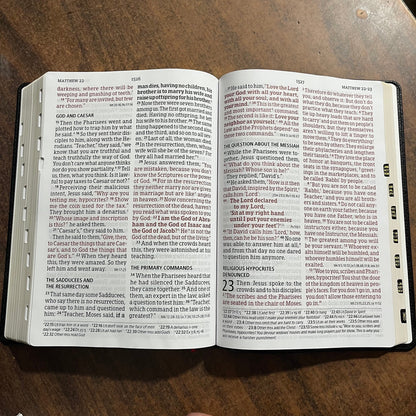 MATTHEW 22
1526
darkness, where there will be
weeping and gnashing of teeth.'
14 "For many are invited, but few
are chosen."
GOD AND CAESAR
15 Then the Pharisees went and
plotted how to trap him by what
he said. 16 So they sent their disci-
ples to him, along with the Hero-
dians. "Teacher," they said, "we
know that you are truthful and
teach truthfully the way of God.
You don't care what anyone thinks
nor do you show partiality. 17 Tell
us, then, what you think. Is it law-
ful to pay taxes to Caesar or not?"
18 Perceiving their malicious
intent, Jesus said, "Why are you
testing me, hypocrites? 19 Show
me the coin used for the tax."
They brought him a denarius.
20 "Whose image and inscription
is this?" he asked them.
21 "Caesar's," they said to him.
Then he said to them, "Give, then,
to Caesar the things that are Cae-
sar's, and to God the things that
are God's." 22 When they heard
this, they were amazed. So they
left him and went away.
THE SADDUCEES AND
THE RESURRECTION
23 That same day some Sadducees,
who say there is no resurrection,
came up to him and questioned
him: 24 "Teacher, Moses said, if a
man dies, having no children, his
brother is to marry his wife and
raise up offspring for his brother.
25 Now there were seven brothers
among us. The first got married and
died. Having no offspring, he left
his wife to his brother. 26 The same
thing happened to the second also,
and the third, and so on to all sev-
en. 27 Last of all, the woman died.
28 In the resurrection, then, whose
wife will she be of the seven? For
they all had married her."
29 Jesus answered them, "You
are mistaken, because you don't
know the Scriptures or the power
of God. 30 For in the resurrection
they neither marry nor are given
in marriage but are like angels
in heaven. 31 Now concerning the
resurrection of the dead, haven't
you read what was spoken to you
by God: 32 I am the God of Abra-
ham and the God of Isaac and
the God of Jacob? He is not the
God of the dead, but of the living."
33 And when the crowds heard
this, they were astonished at his
teaching.
THE PRIMARY COMMANDS
34 When the Pharisees heard that
he had silenced the Sadducees,
they came together. 35 And one of
them, an expert in the law, asked
a question to test him: 36 "Teacher,
which command in the law is the
greatest?"
1527
MATTHEW 22–23
37 He said to him, "Love the Lord
your God with all your heart,
with all your soul, and with all
your mind. 38 This is the greatest
and most important command.
39 The second is like it: Love your
neighbor as yourself. 40 All the
Law and the Prophets depend on
these two commands."
THE QUESTION ABOUT THE MESSIAH
41 While the Pharisees were to-
gether, Jesus questioned them,
42 "What do you think about the
Messiah? Whose son is he?"
They replied, "David's."
43 He asked them, "How is it then
that David, inspired by the Spirit,
calls him 'Lord':
44 The Lord declared
to my Lord,
'Sit at my right hand
until I put your enemies
under your feet'?
45 "If David calls him 'Lord,' how,
then, can he be his son?" 46 No one
was able to answer him at all,
and from that day no one dared
to question him anymore.
RELIGIOUS HYPOCRITES
DENOUNCED
23 Then Jesus spoke to the
crowds and to his disciples:
2 "The scribes and the Pharisees
are seated in the chair of Moses.
3 Therefore do whatever they tell
you, and observe it. But don't do
what they do, because they don't
practice what they teach. 4 They
tie up heavy loads that are hard
to carry and put them on people's
shoulders, but they themselves
aren't willing to lift a finger to
move them. 5 They do everything
to be seen by others: They
enlarge their phylacteries and
lengthen their tassels. 6 They love the place
of honor at banquets, the front
seats in the synagogues, 7 greet-
ings in the marketplaces, and to
be called 'Rabbi' by people.
8 "But you are not to be called
'Rabbi,' because you have one
Teacher, and you are all broth-
ers and sisters. 9 Do not call any-
one on earth your father, because
you have one Father, who is in
heaven. 10 You are not to be called
instructors either, because you
have one Instructor, the Messiah.
11 The greatest among you will
be your servant. 12 Whoever ex-
alts himself will be humbled, and
whoever humbles himself will be
exalted.
13 "Woe to you, scribes and Phari-
sees, hypocrites! You shut the door
of the kingdom of heaven in peo-
ple's faces. For you don't go in, and
you don't allow those entering to
go in.